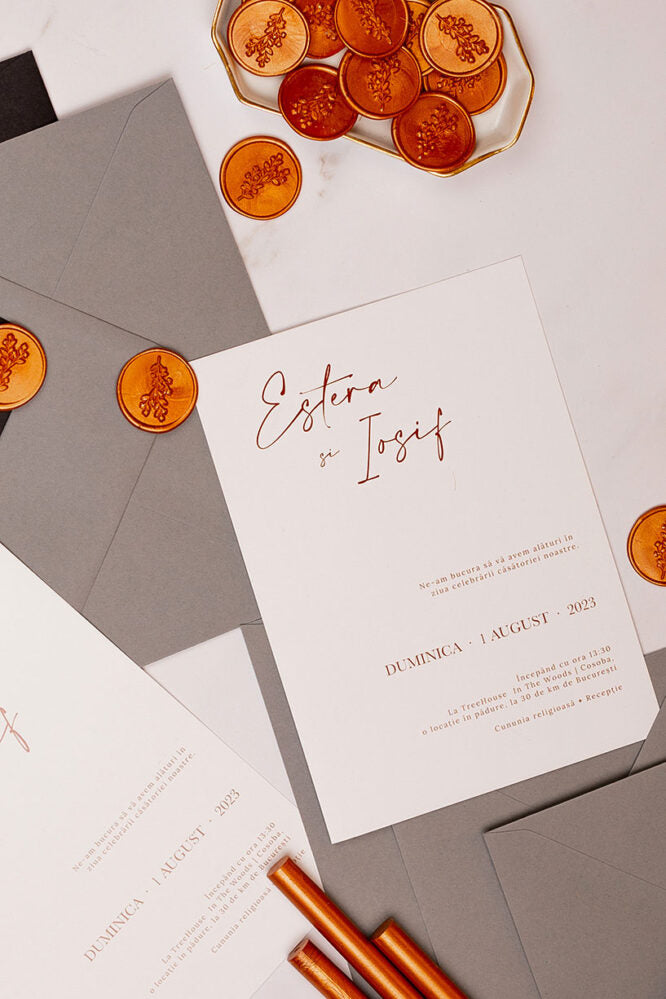 Estera
si Iosif
Ne-am bucura să vă avem alături în
ziua celebrării căsătoriei noastre.
DUMINICA · 1 AUGUST · 2023
Începând cu ora 13:30
La TreeHouse In The Woods | Cosoba,
o locație în pădure, la 30 de km de București
Cununia religioasă • Recepție
f
Ne-am bucura să vă avem alături în
ziua celebrării căsătoriei noastre.
DUMINICA · 1 AUGUST · 2023
Începând cu ora 13:30
La TreeHouse In The Woods | Cosoba,
o locație în pădure, la 30 de km de București
Cununia religioasă